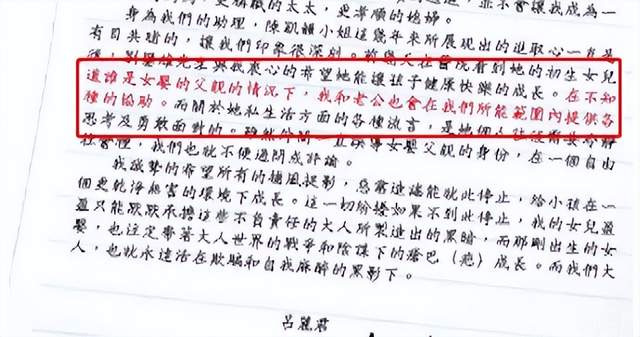 更稱職的太太，更孝順的媳婦。
身為我們的助理，陳凱韻小姐這幾年來所展現出的進取心一直是
有目共睹的，讓我們印象很深刻。前幾天在醫院看到她的初生女兒
後，劉鑾雄先生與我衷心的希望她能讓孩子健康快樂的成長。在不知
道誰是女嬰的父親的情況下，我和老公也會在我們所能範圍內提供各
種的協助。而關於她私生活方面的各種流言，是她個人
思考及勇敢面對的。
在當裡，我們也就不便過問或評論。
我誠摯的希望所有的捕風捉影，惡意造謠能就此停止，給小孩在一
個更乾淨無害的環境下成長。這一切紛擾如果不到此停止，我的女兒
盈只能默默承擔這些不負責任的大人所製造出的黑暗，而那剛出生的女
嬰，也注定帶著大人世界的戰爭和陰謀下的瘡巴（疤）成長。而我們大
人，也就永遠活在欺騙和自我麻醉的黑影下。
呂麗君